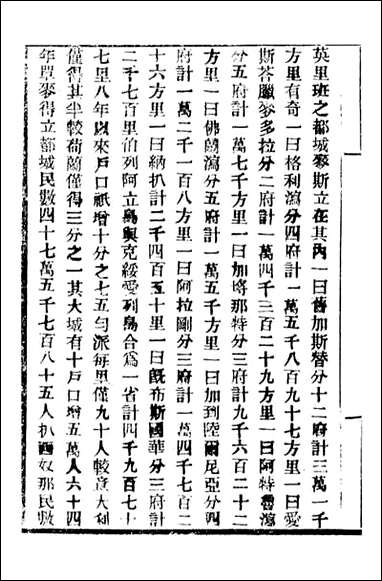 英里班之都城麥斯立在其內一曰舊加斯替分十二府計三萬一千
方里有奇一曰格利瀉分四府計一萬五千八百九十七方里一曰愛
斯荅臘麥多拉分二府計一萬四千三百二十九方里一曰阿特魯瀉
分五府計一萬七千方里一曰加喀那特分三府計九千六百二十二
方里一曰佛蘭瀉分五府計一萬五千方里一曰加到陸爾尼亞分四
府計一萬二千一百八方里一曰阿拉剛分三府計一萬四千七百二
十六方里一曰納扒計二千四百五十里一曰旣布斯國華分三府計
二千七百里伯列阿立島與克綏愛列島合爲一省計四千九百七十
七里八年以來戶口祇增十分之七五勻派每里僅九十人較意大利
僅得其半較荷蘭僅得三分之一其大城有十戶口增五萬人六十四
年單麥得立都城民數四十七萬五千七百八十五人扒西奴那民數